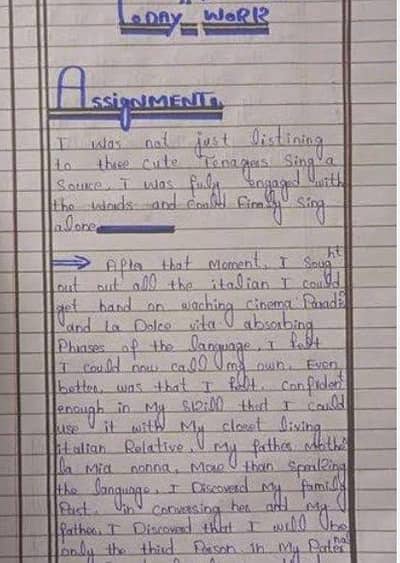 ToDAY WoRK
AssigNMENT
I was not just listining
to thsee cute Tenagers Sing a
Source, I was fuly engaged with
the words and Could Finaly Sing
alone
⇒ After that Moment, I Sought
out out all the italian I could
get hand on waching cinema Paradi
and La Dolce vita absorbing
Phrases of the language, I felt
I could now call my own. Even
better, was that I felt. Confident
enough in My Skill that I Could
use it with My closet living
italian Relative, My father Mothe
la Mia nonna, More than Speaking
the language, I Discoverd my family
Past. in conversing her and my
father, I Discoverd that I will be
only the third Person in My Paternal